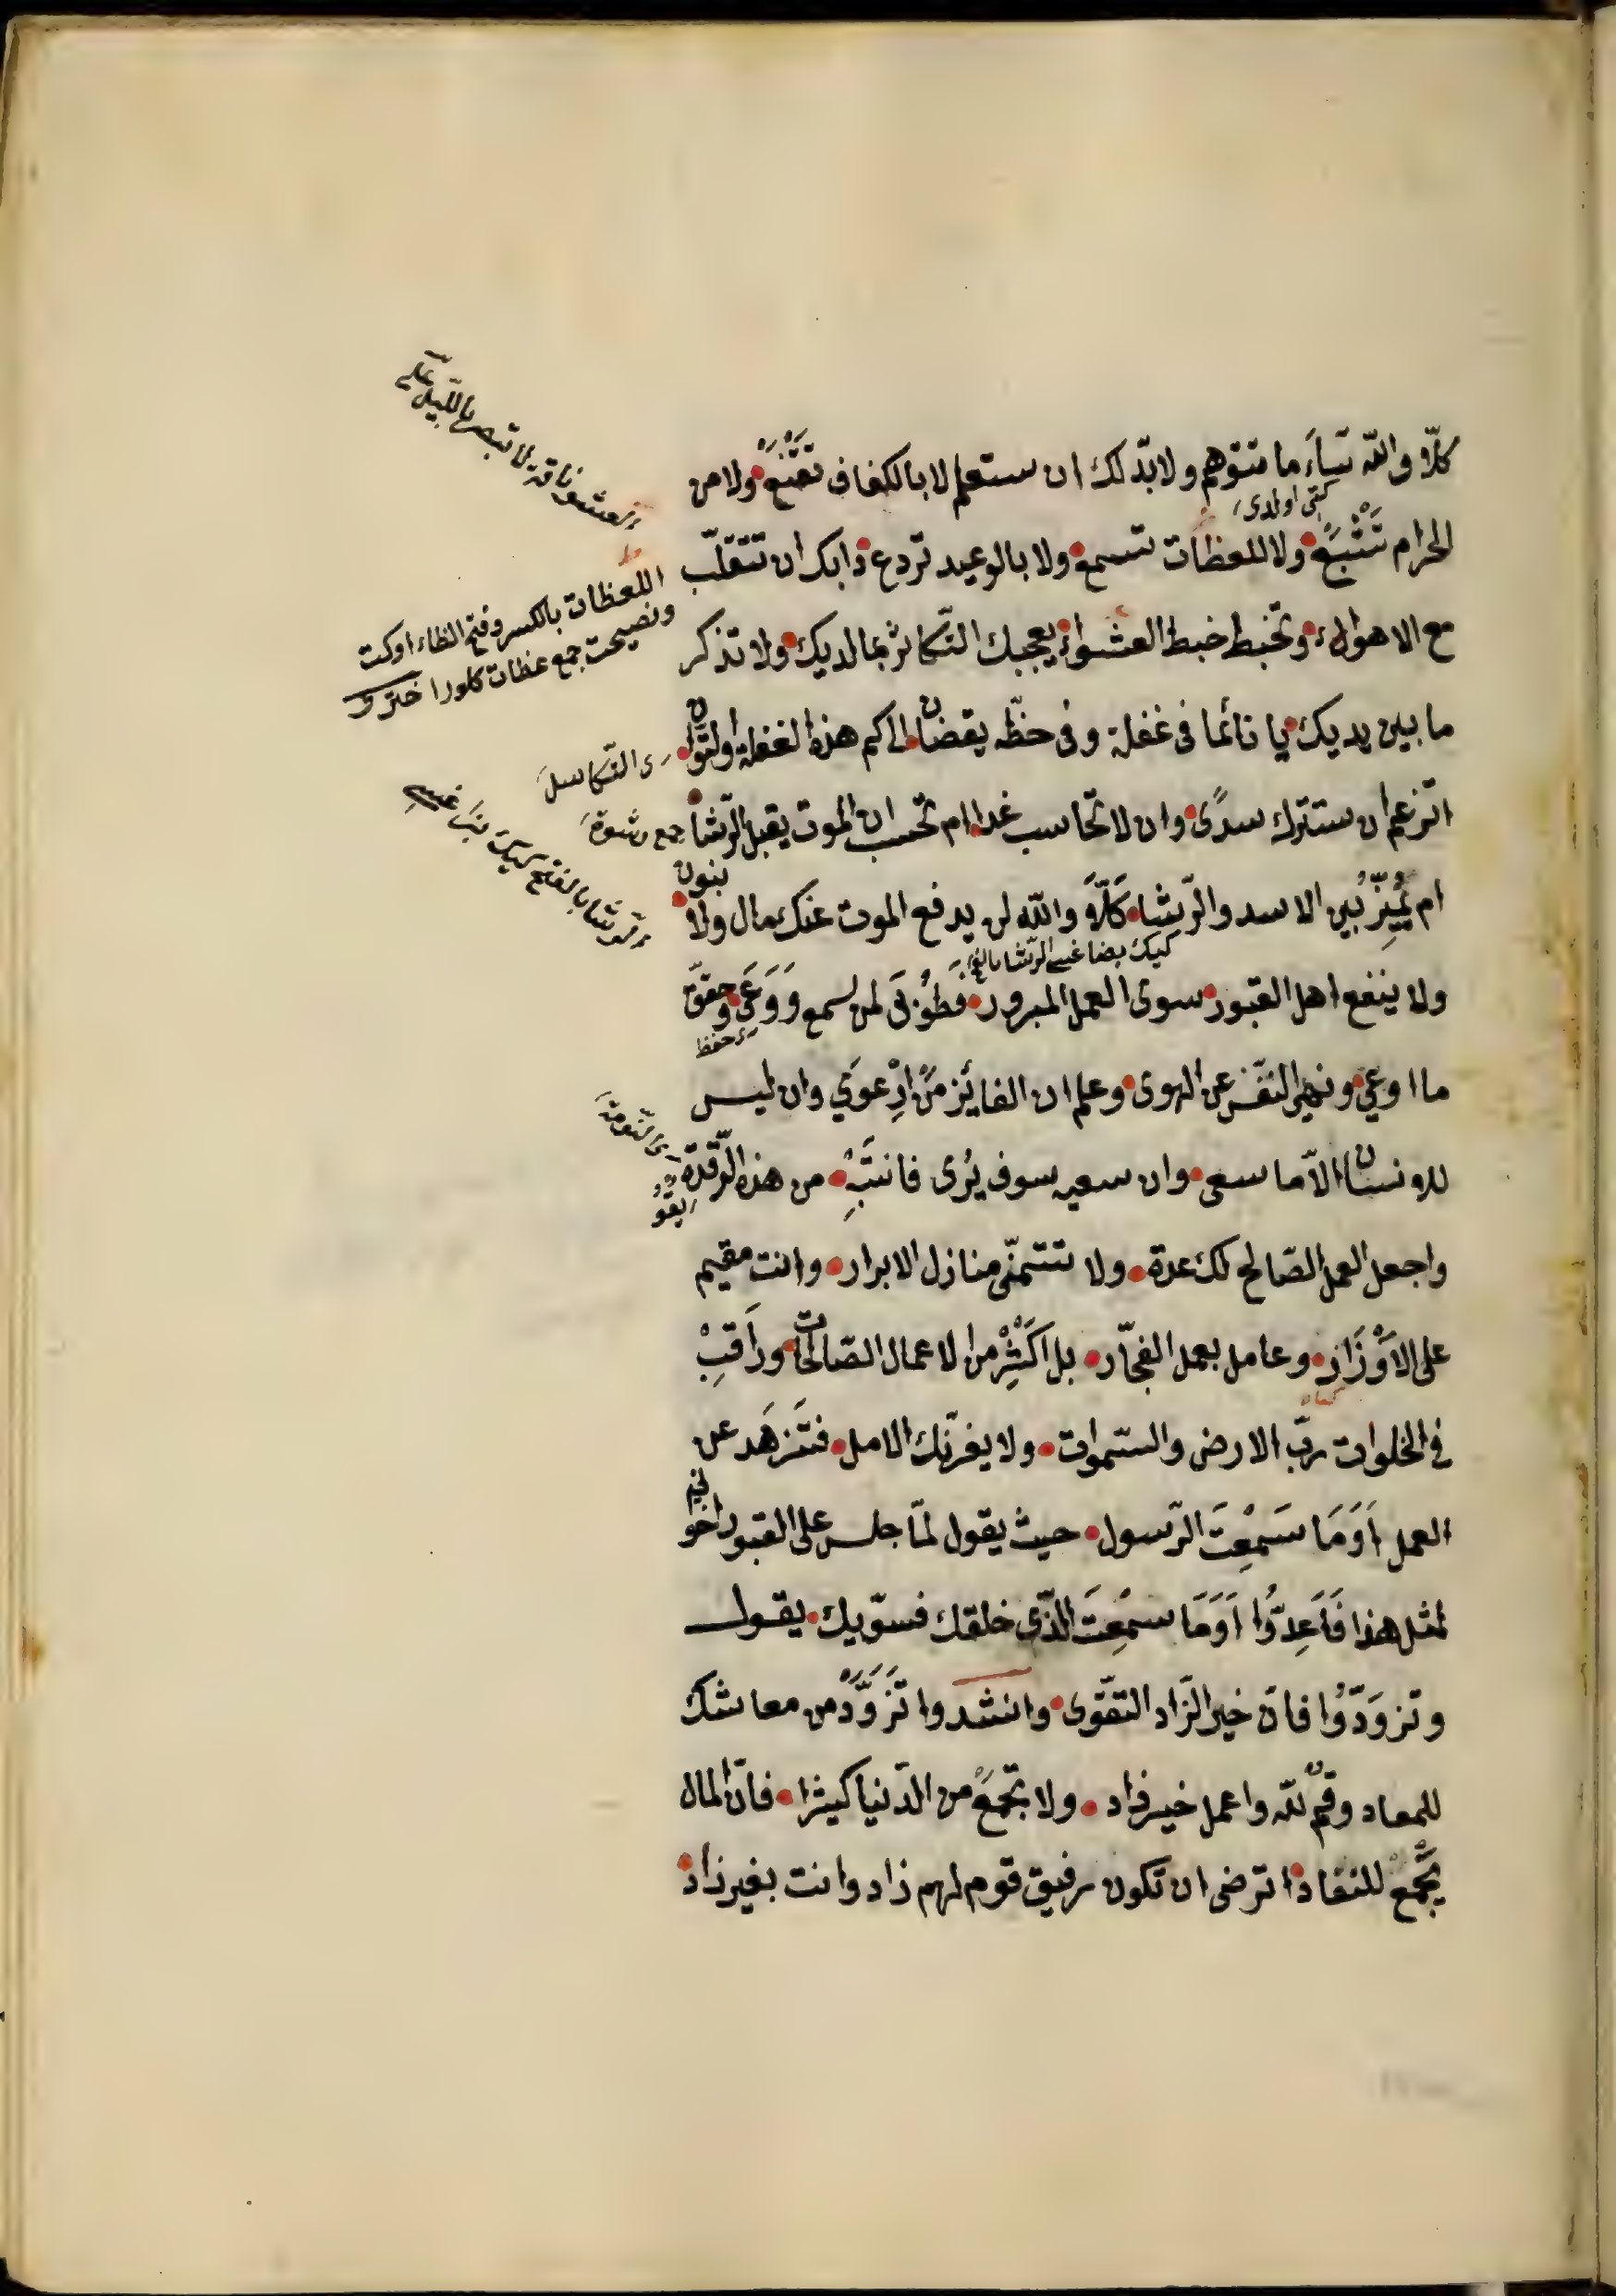 كلّا والله سَاءَ ما تتوهم ولا بدّ لك ان ستعلم لا بالكفاف تَقْنَعُ ولا من
الحرام تَشْبَعُ ولا للعظات تسمع ولا بالوعيد تردع دابك ان تتقلّب
مع الاهواء وتخبط خبط العشواء يعجبك التّكاثر بما لديك ولا تذكر
ما بين يديك يا نائما فى غفلة وفى حظّه يقضان الى كم هذه الغفلة والتّوان
اتزعم ان ستترك سدًى وان لا تحاسب غدا ام تحسب ان الموت يقبل الرّشا
ام يُمَيِّزُ بين الاسد والرّشا كَلَّا والله لن يدفع الموت عنك مال ولا بنون
ولا ينفع اهل القبور سوى العمل المبرور فَطُوْبَى لمن سمع وَوَعَى وحقّق
ما اوعى ونهى النّفس عن الهوى وعلم ان الفائز من اِرْعَوَى وان ليس
للانسان الّا ما سعى وان سعيه سوف يُرى فانتَبِهْ من هذه الرّقدة
واجعل العمل الصّالح لك عدة ولا تتمنّى منازل الابرار وانت مقيم
على الاَوْزَار وعامل بعمل الفجّار بل اَكْثِرْ من الاعمال الصّالحات ورَاقِبْ
فى الخلوات ربّ الارض والسّموات ولا يغرنّك الامل فتَزهَد عن
العمل اَوَمَا سَمِعْتَ الرّسول حيث يقول لمّا جلس على القبور اخوانى
لمثل هذا فَاَعِدُّوا اَوَمَا سَمِعْتَ الّذى خلقك فسوّيك يقول
وتزوَدّوُا فانّ خير الزّاد التقّوى وانشدوا تَزَوَّدْ من معاشك
للمعاد وقُمْ لله واعمل خير زاد ولا تجمَعْ من الدّنيا كثيرا فانّ المال
يُجْمَعُ للنفاد اترضى ان تكون رفيق قوم لهم زاد وانت بغير زاد
العشو ناقة لا تبصر بالليل
اللعظات بالكسر وفتح الظاء اوكت
ونصيحت جمع عظات كلور اخترى
اى التّكاسل
جمع رشوة
كيك
اى حفظ
اى النومة